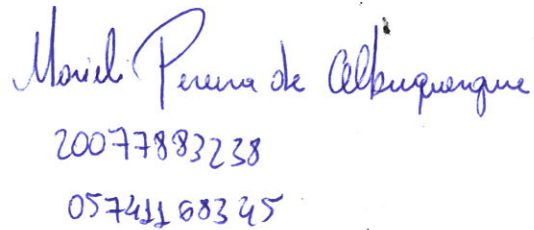 Marieli Pereira de Albuquerque
20077883238
05741168345